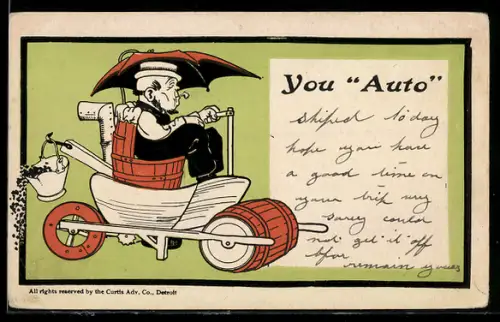 You "Auto"
shiped to day
hope you have
a good time on
your trip
sorey
not get it off
remain yours
All rights reserved by the Curtis Adv. Co., Detroit